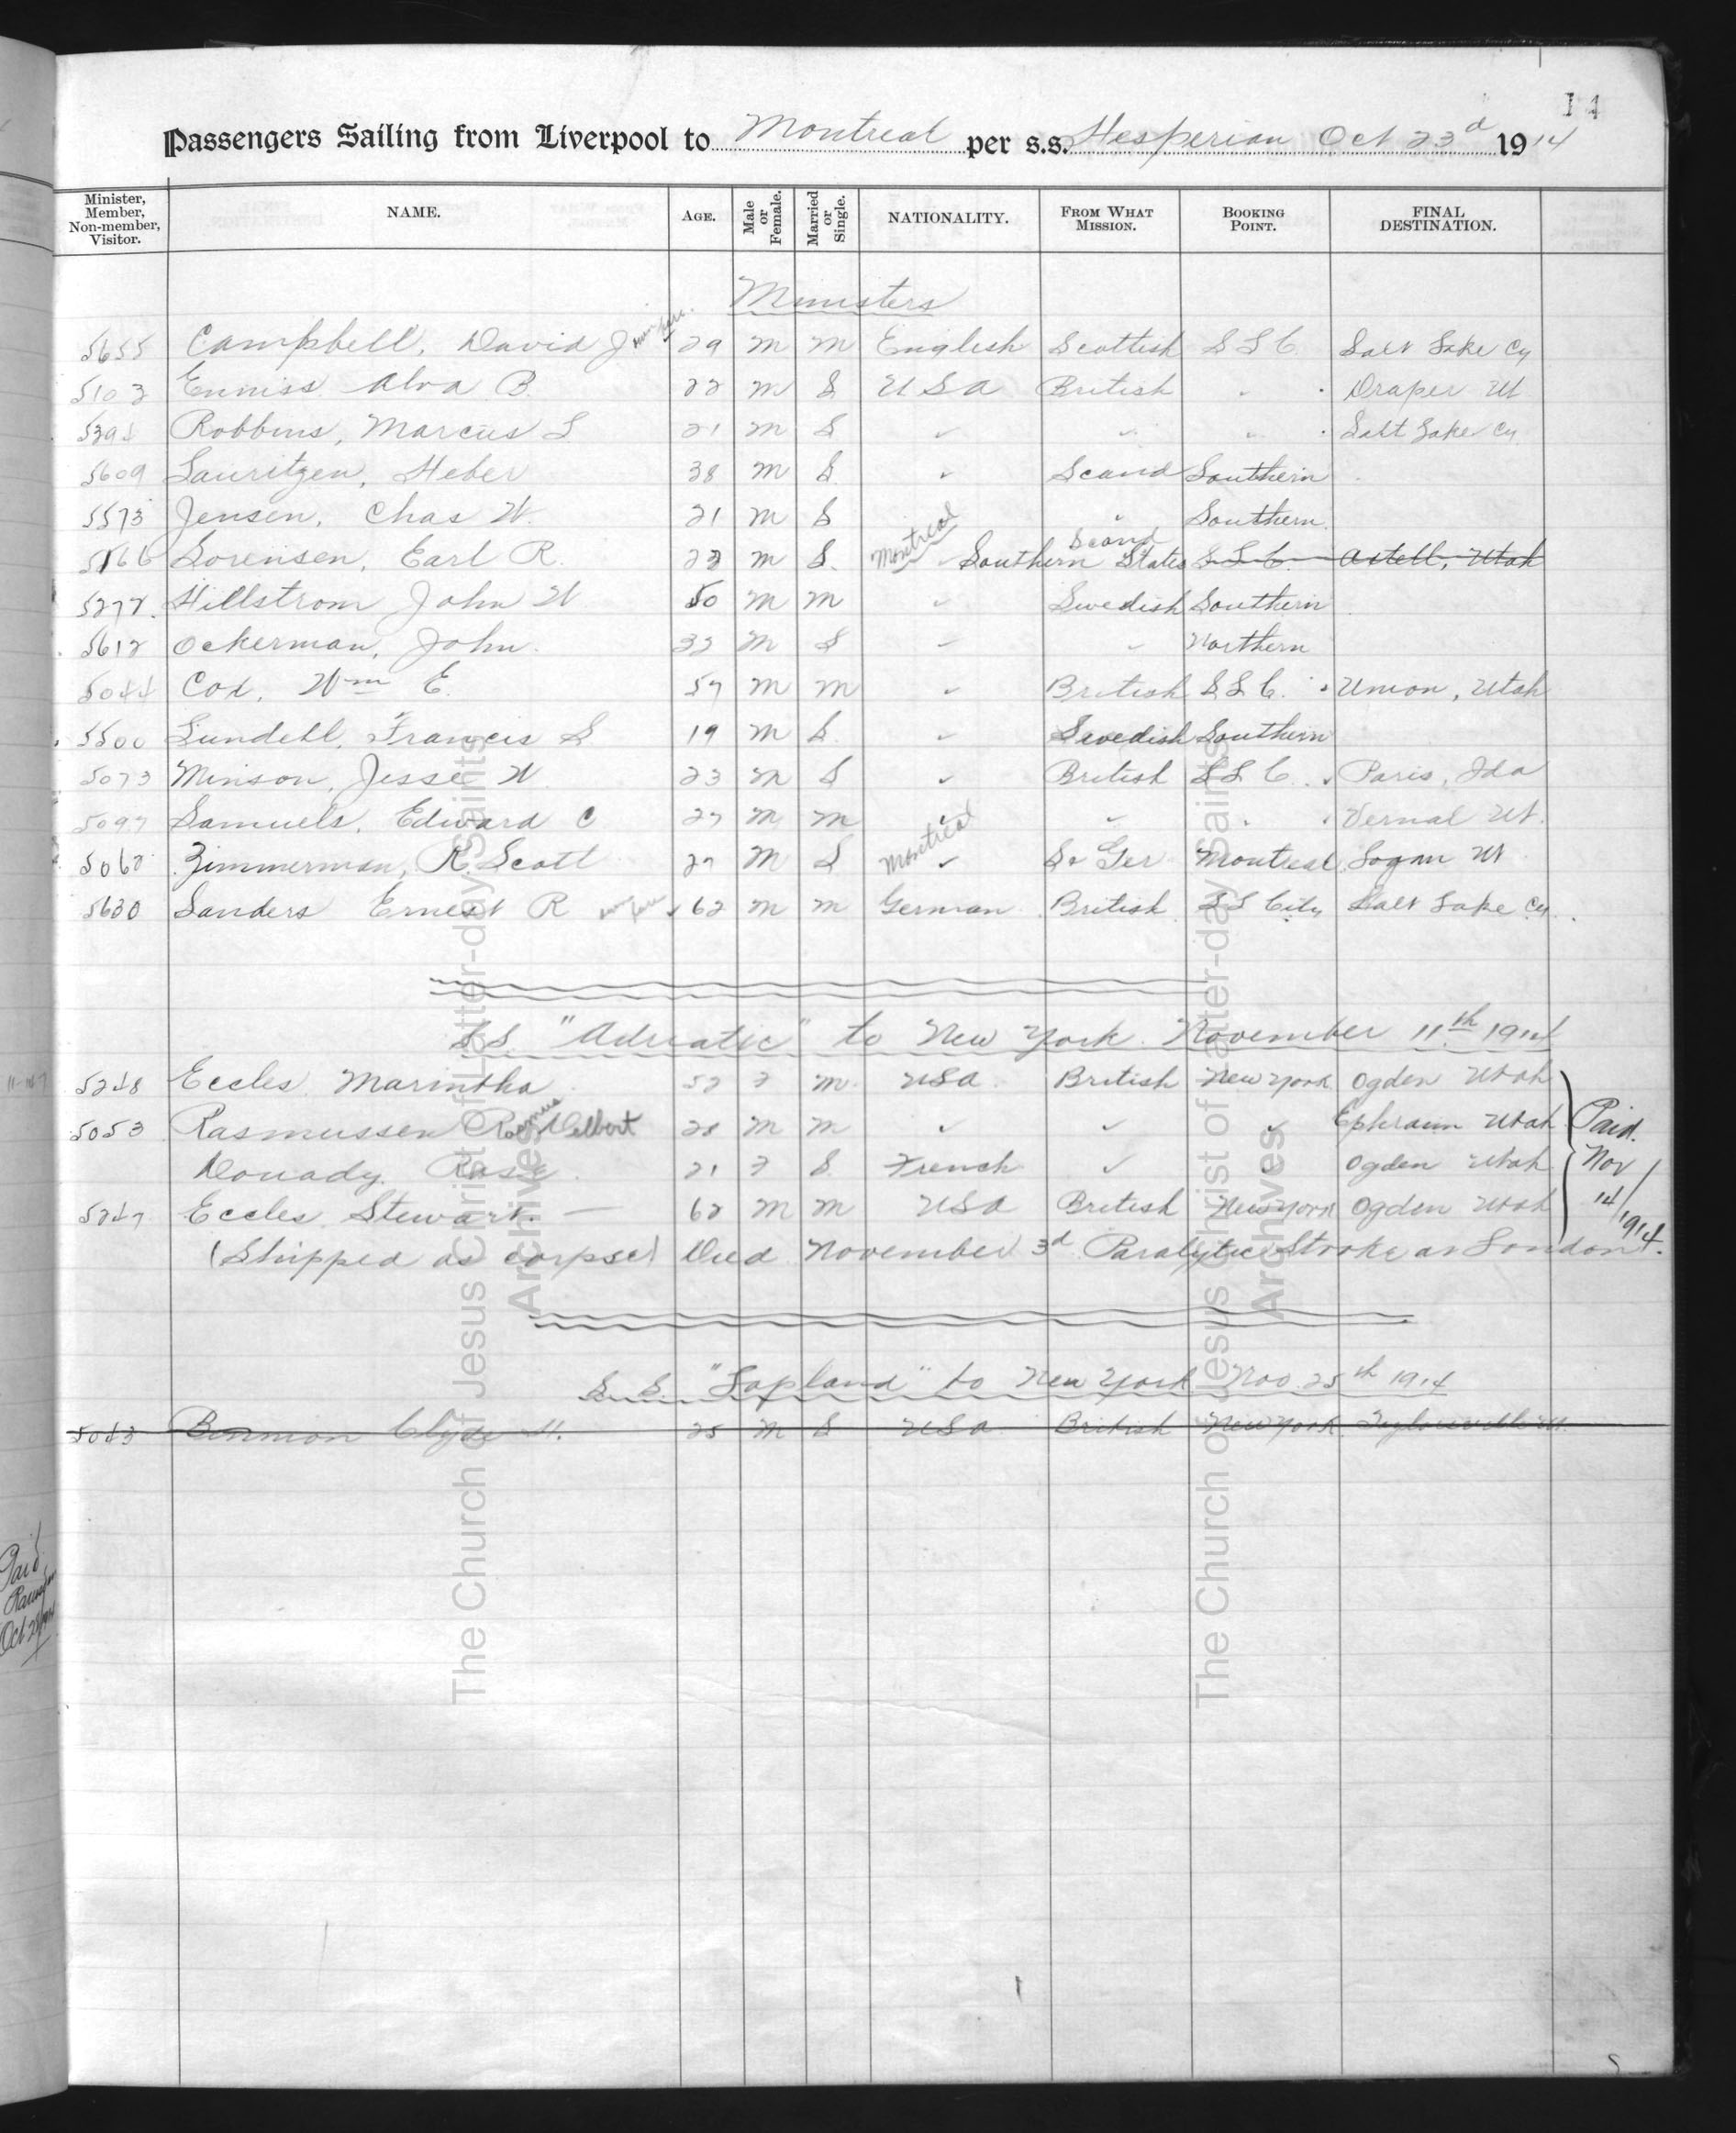 14
Passengers Sailing from Liverpool to Montreal per s.s. Hesperian Oct 23d 1914
Minister, Member, Non-member, Visitor. NAME. AGE. Male or Female. Married or Single. NATIONALITY. FROM WHAT MISSION. BOOKING POINT. FINAL DESTINATION.
Ministers
5655 Campbell, David J 29 M M English Scottish S L C Salt Lake Cy
5102 Enniss Alva B. 22 M S U S A British " Draper Ut
Robbins, Marcus L 21 M S " " " Salt Lake Cy
5609 Lauritzen, Heber 38 M S " Scand Southern
5573 Jensen, Chas W. 21 M S " Southern
5166 Sorensen, Earl R. 23 M S. Montreal Southern States Scand S L C Axtell, Utah
5272. Hillstrom John W 50 M M " Swedish Southern
5612 Ockerman, John. 33 M S " " Northern
5044 Cox, Wm E. 57 M M " British S L C. Union, Utah
5500 Lundell, Francis S 19 M S. " Swedish Southern
5073 Minson, Jesse W 23 M S " British S L C. Paris, Ida
5097 Samuels, Edward C 27 M M " " " Vernal Ut.
5062 Zimmerman, R. Scott 27 M S Montreal " So Ger Montreal Logan Ut
5630 Sanders Ernest R 62 M M German British S L City Salt Lake Cy.
S.S. "Adriatic" to New York. November 11th 1914
5248 Eccles Marintha 52 F M. USA British New York Ogden Utah
5053 Rasmussen Rasmus Delbert 28 M M " " " Ephraim Utah
Douady. Rose 21 F S French " " Ogden Utah
5247 Eccles Stewart. — 62 M M USA British New York Ogden Utah
Paid. Nov 14/1914.
(Shipped as corpse) Died November 3d Paralytic Stroke at London.
S. S. "Lapland" to New York Nov 25th 1914
5043 Clyde H. 25 M S USA British New York Taylorsville Ut.
Paid
Oct
The Church of Jesus Christ of Latter-day Saints
Archives
The Church of Jesus Christ of Latter-day Saints
Archives